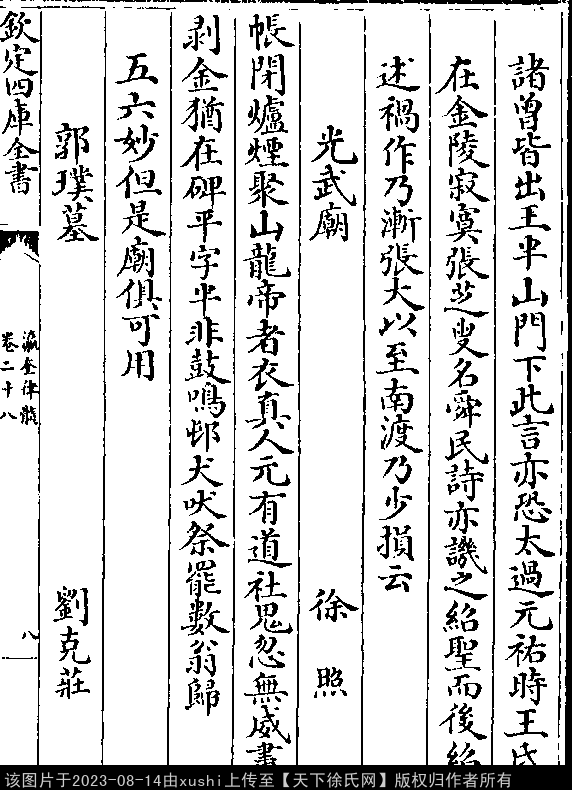 諸曾皆出王半山門下此言亦恐太過元祐時王氏
在金陵寂寞張芝叟名舜民詩亦譏之紹聖而後紹
述禍作乃漸張大以至南渡乃少損云
光武廟 徐照
帳閉爐煙聚山龍帝者衣真人元有道社鬼忽無威畫
剥金猶在碑平字半非鼓鳴邨犬吠祭罷數翁歸
五六妙但是廟俱可用
郭璞墓 劉克莊
欽定四庫全書
瀛奎律髓
卷二十八
八
该图片于2023-08-14由xushi上传至【天下徐氏网】版权归作者所有